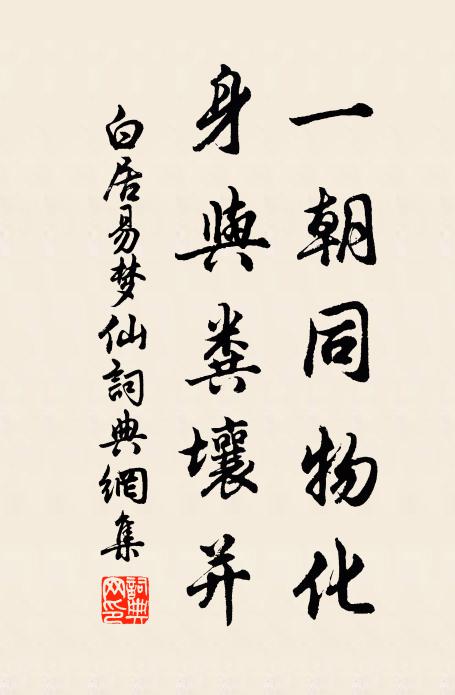 一朝同物化
身與糞壤并
白居易梦仙詞典網集
詞典网印